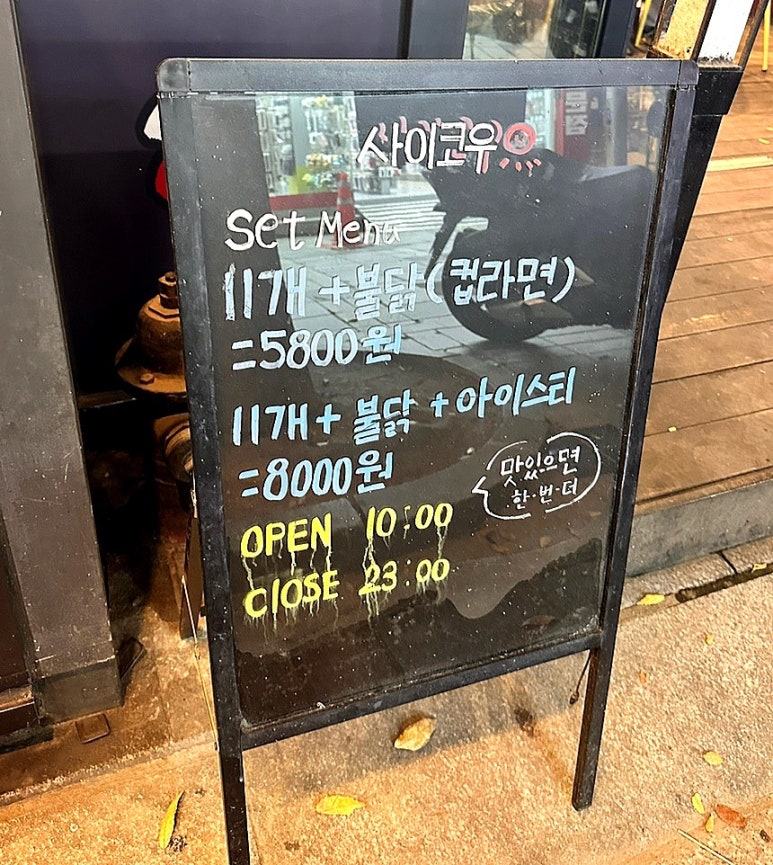 사이코우
Set Menu
11개 + 불닭 (컵라면)
= 5800원
11개 + 불닭 + 아이스티
= 8000원
맛있으면
한·번·더
OPEN 10:00
ClOSE 23:00